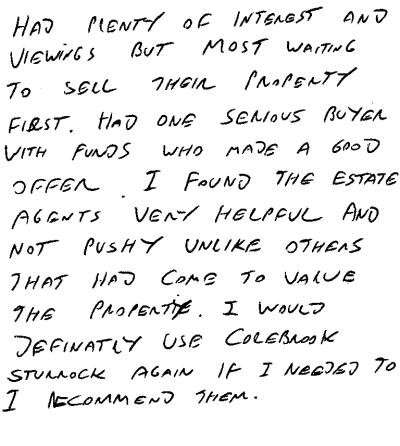 HAD PLENTY OF INTEREST AND
VIEWINGS BUT MOST WAITING
TO SELL THEIR PROPERTY
FIRST. HAD ONE SERIOUS BUYER
WITH FUNDS WHO MADE A GOOD
OFFER. I FOUND THE ESTATE
AGENTS VERY HELPFUL AND
NOT PUSHY UNLIKE OTHERS
THAT HAD COME TO VALUE
THE PROPERTY. I WOULD
DEFINATLY USE COLEBROOK
STURROCK AGAIN IF I NEEDED TO
I RECOMMEND THEM.